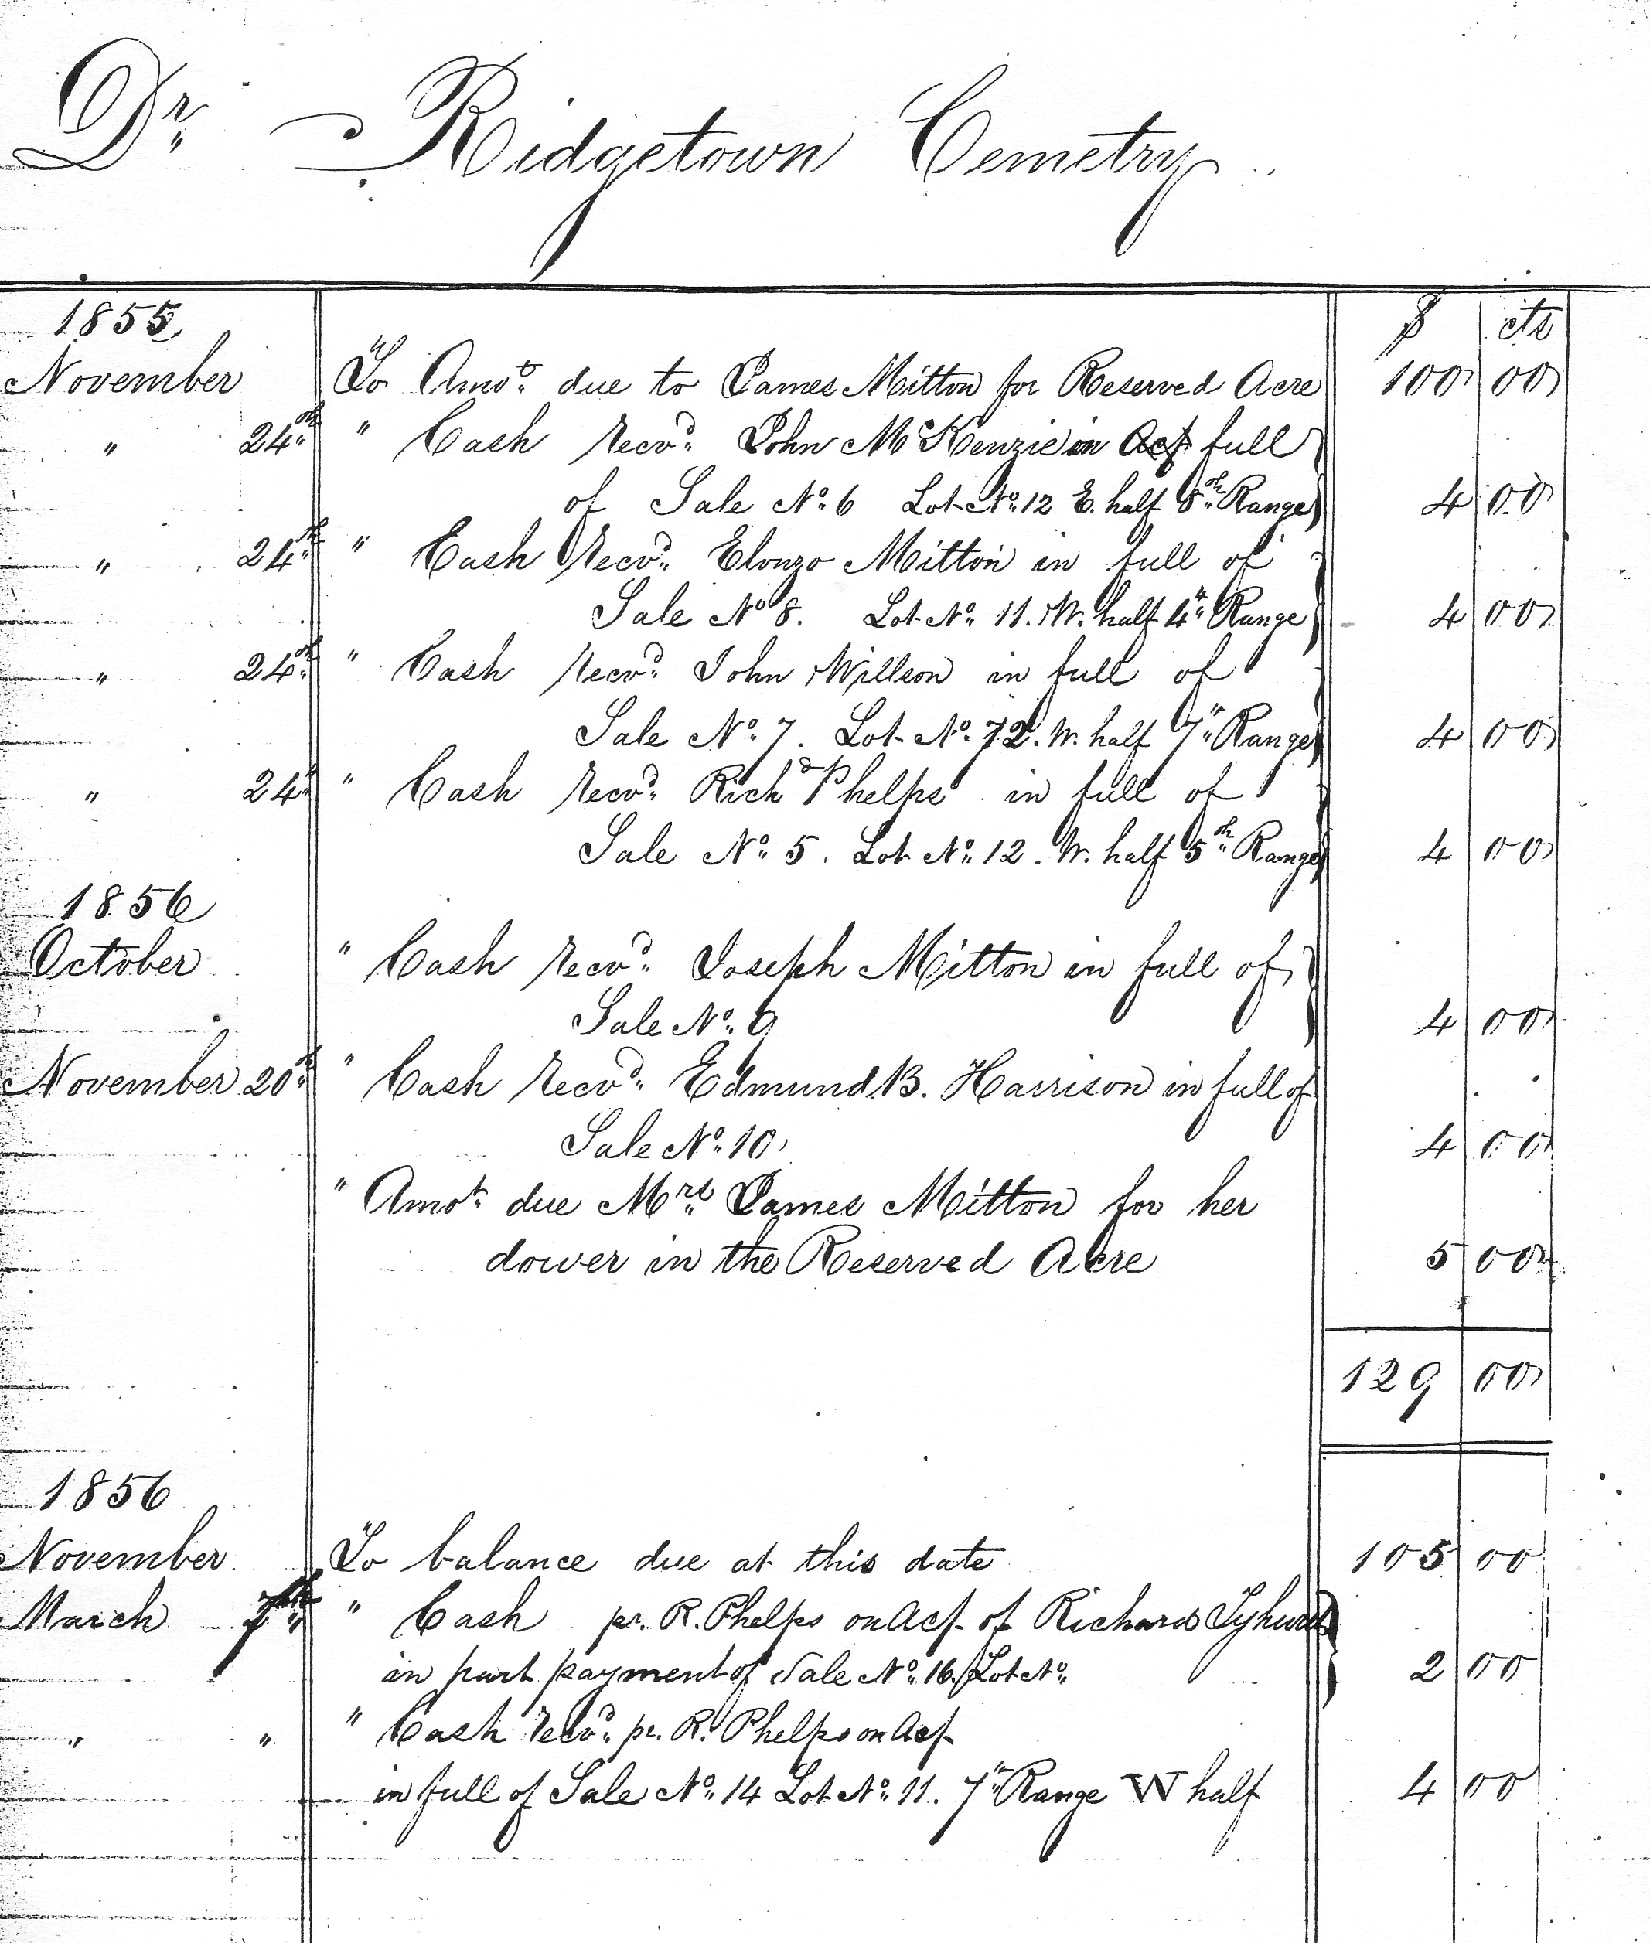 Dr. Ridgetown Cemetry
1855 $ cts
November To Amot. due to James Mitton for Reserved Acre 100 00
" 24th " Cash recvd. John McKenzie in Acf full
of Sale No. 6 Lot No. 12 E. half 8th Range 4 00
" 24th " Cash Recvd. Elonzo Mitton in full of
Sale No 8. Lot No. 11. W. half 4th Range 4 00
" 24th " Cash recvd. John Willson in full of
Sale No. 7. Lot No. 12. W. half 7th Range 4 00
" 24th " Cash recvd. Richd Phelps in full of
Sale No. 5. Lot No. 12. W. half 5th Range 4 00
1856
October " Cash recvd. Joseph Mitton in full of
Sale No. 9 4 00
November 20th " Cash recvd. Edmund B. Harrison in full of
Sale No. 10 4 00
" Amot. due Mrs. James Mitton for her
dower in the Reserved Acre 5 00
129 00
1856
November To balance due at this date 105 00
March 7th " Cash pr. R. Phelps on Acf. of Richard Tyhurst
in part payment of Sale No. 16. Lot No. 2 00
" " " Cash recvd. pr. R. Phelps on Acf.
in full of Sale No. 14 Lot No. 11. 7th Range W half 4 00